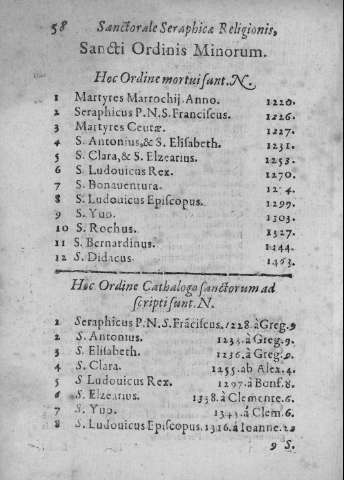 58 Sanctorale Seraphicæ Religionis,
Sancti Ordinis Minorum.
Hoc Ordine mortui sunt. N.
1 Martyres Marrochij. Anno. 1220.
2 Seraphicus P.N.S. Franciscus. 1226.
3 Martyres Ceutæ. 1227.
4 S. Antonius, & S. Elisabeth. 1231.
5 S. Clara, & S. Elzearius. 1253.
6 S. Ludouicus Rex. 1270.
7 S. Bonauentura.
8 S. Ludouicus Episcopus. 1299.
9 S. Yuo. 1303.
10 S. Rochus. 1327.
11 S. Bernardinus. 1444.
12 S. Didacus. 1463.
Hoc Ordine Cathalogo sanctorum ad
scripti sunt. N.
1 Seraphicus P.N.S. Frãciscus. 1228. à Greg. 9
2 S. Antonius. 1233. á Greg. 9.
3 S. Elisabeth. 1236. á Greg. 9.
4 S. Clara. 1255. ab Alex. 4.
5 S Ludouicus Rex. 1297. á Bonf. 8.
6 S. Elzearius. 1338. á Clemente. 6.
7 S. Yuo. 1343. á Clem. 6.
8 S. Ludouicus Episcopus. 1316. á Ioanne. 22
9 S.